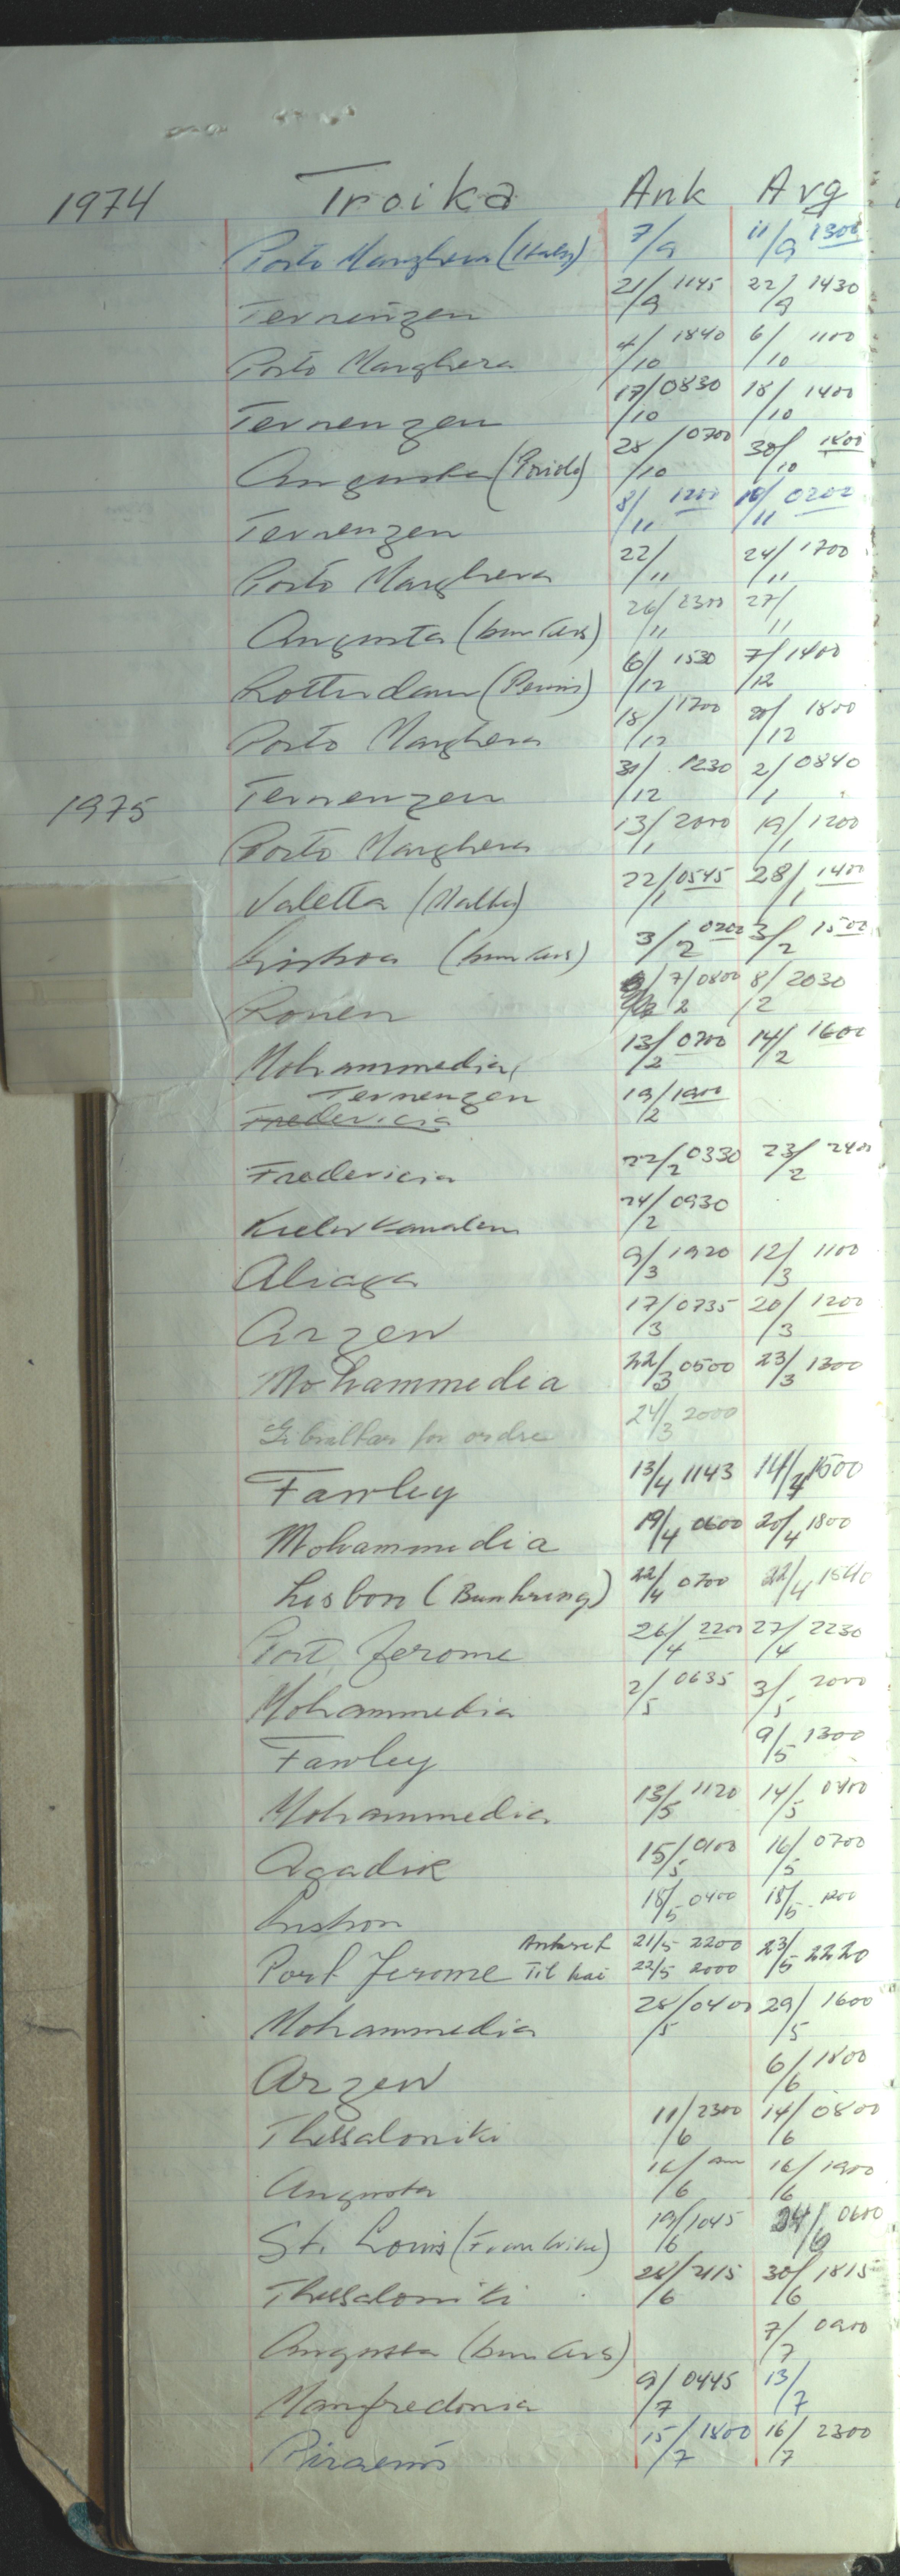 1974 Troika Ank Avg
Porto Marghera (Italy) 7/9 11/9 1300
Terneuzen 21/9 1145 22/9 1430
Porto Marghera 4/10 1840 6/10 1100
Terneuzen 17/10 0830 18/10 1400
Augusta (Priolo) 28/10 0700 30/10 1800
Terneuzen 8/11 1200 10/11 0200
Porto Marghera 22/11 24/11 1700
Augusta (bunkers) 26/11 2300 27/11
Rotterdam (Pernis) 6/12 1530 7/12 1400
Porto Marghera 18/12 1700 20/12 1800
1975 Terneuzen 31/12 1230 2/1 0840
Porto Marghera 13/1 2000 19/1 1200
Valetta (Malta) 22/1 0545 28/1 1400
Lisboa (bunkers) 3/2 0200 3/2 1500
Rouen 7/2 0800 8/2 2030
Mohammedia 13/2 0700 14/2 1600
Terneuzen 19/2 1900
Fredericia
Fredericia 22/2 0330 23/2 2400
Kielerkanalen 24/2 0930
Aliaga 9/3 1920 12/3 1100
Arzew 17/3 0735 20/3 1200
Mohammedia 22/3 0500 23/3 1300
Gibraltar for ordre 24/3 2000
Fawley 13/4 1143 14/4 1500
Mohammedia 19/4 0600 20/4 1800
Lisbon (Bunkring) 22/4 0700 22/4 1540
Port Jerome 26/4 2200 27/4 2230
Mohammedia 2/5 0635 3/5 2000
Fawley 9/5 1300
Mohammedia 13/5 1120 14/5 0400
Agadir 15/5 0100 16/5 0700
Lisbon 18/5 0400 18/5 1200
Ankret 21/5 2200
Port Jerome Til kai 22/5 2000 23/5 2220
Mohammedia 28/5 0400 29/5 1600
Arzew 6/6 1800
Thessaloniki 11/6 2300 14/6 0800
Augusta 16/6 16/6 1900
St. Louis (Frankrike) 19/6 1045 24/6 0600
Thessaloniki 28/6 2115 30/6 1815
Augusta (bunkers) 7/7 0900
Manfredonia 9/7 0445 13/7
Piraeus 15/7 1800 16/7 2300